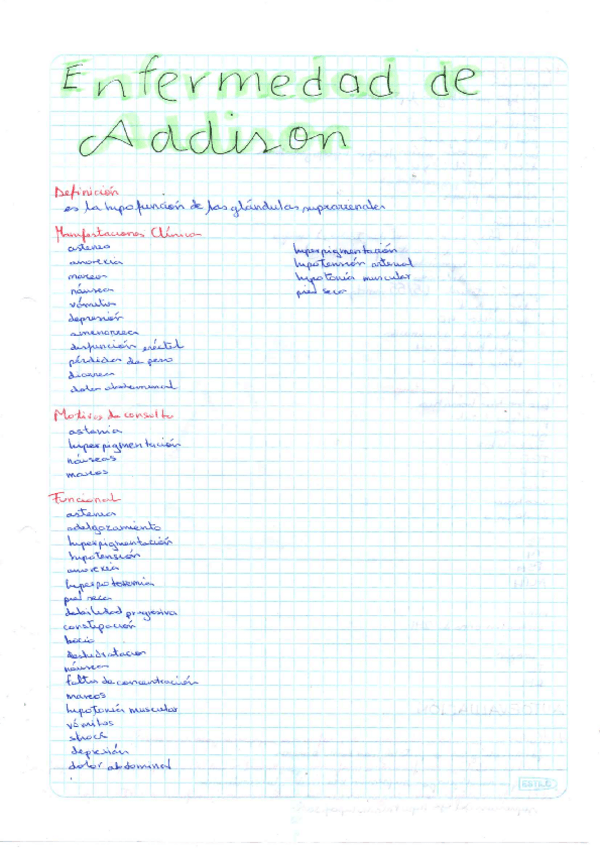 Enfermedad de
Addison
Definición
es la hipofunción de las glándulas suprarrenales
Manifestaciones Clínica
astenia
anorexia
mareos
náusea
vómitos
depresión
amenorrea
disfunción eréctil
pérdida de peso
diarrea
dolor abdominal
hiperpigmentación
hipotensión arterial
hipotonía muscular
piel seca
Motivos de consulta
astenia
hiperpigmentación
náuseas
mareos
Funcional
astenia
adelgazamiento
hiperpigmentación
hipotensión
anorexia
hiperpotasemia
piel seca
debilidad progresiva
constipación
bocio
deshidratacion
náusea
falta de concentración
mareos
hipotonía muscular
vómitos
shock
depresión
dolor abdominal